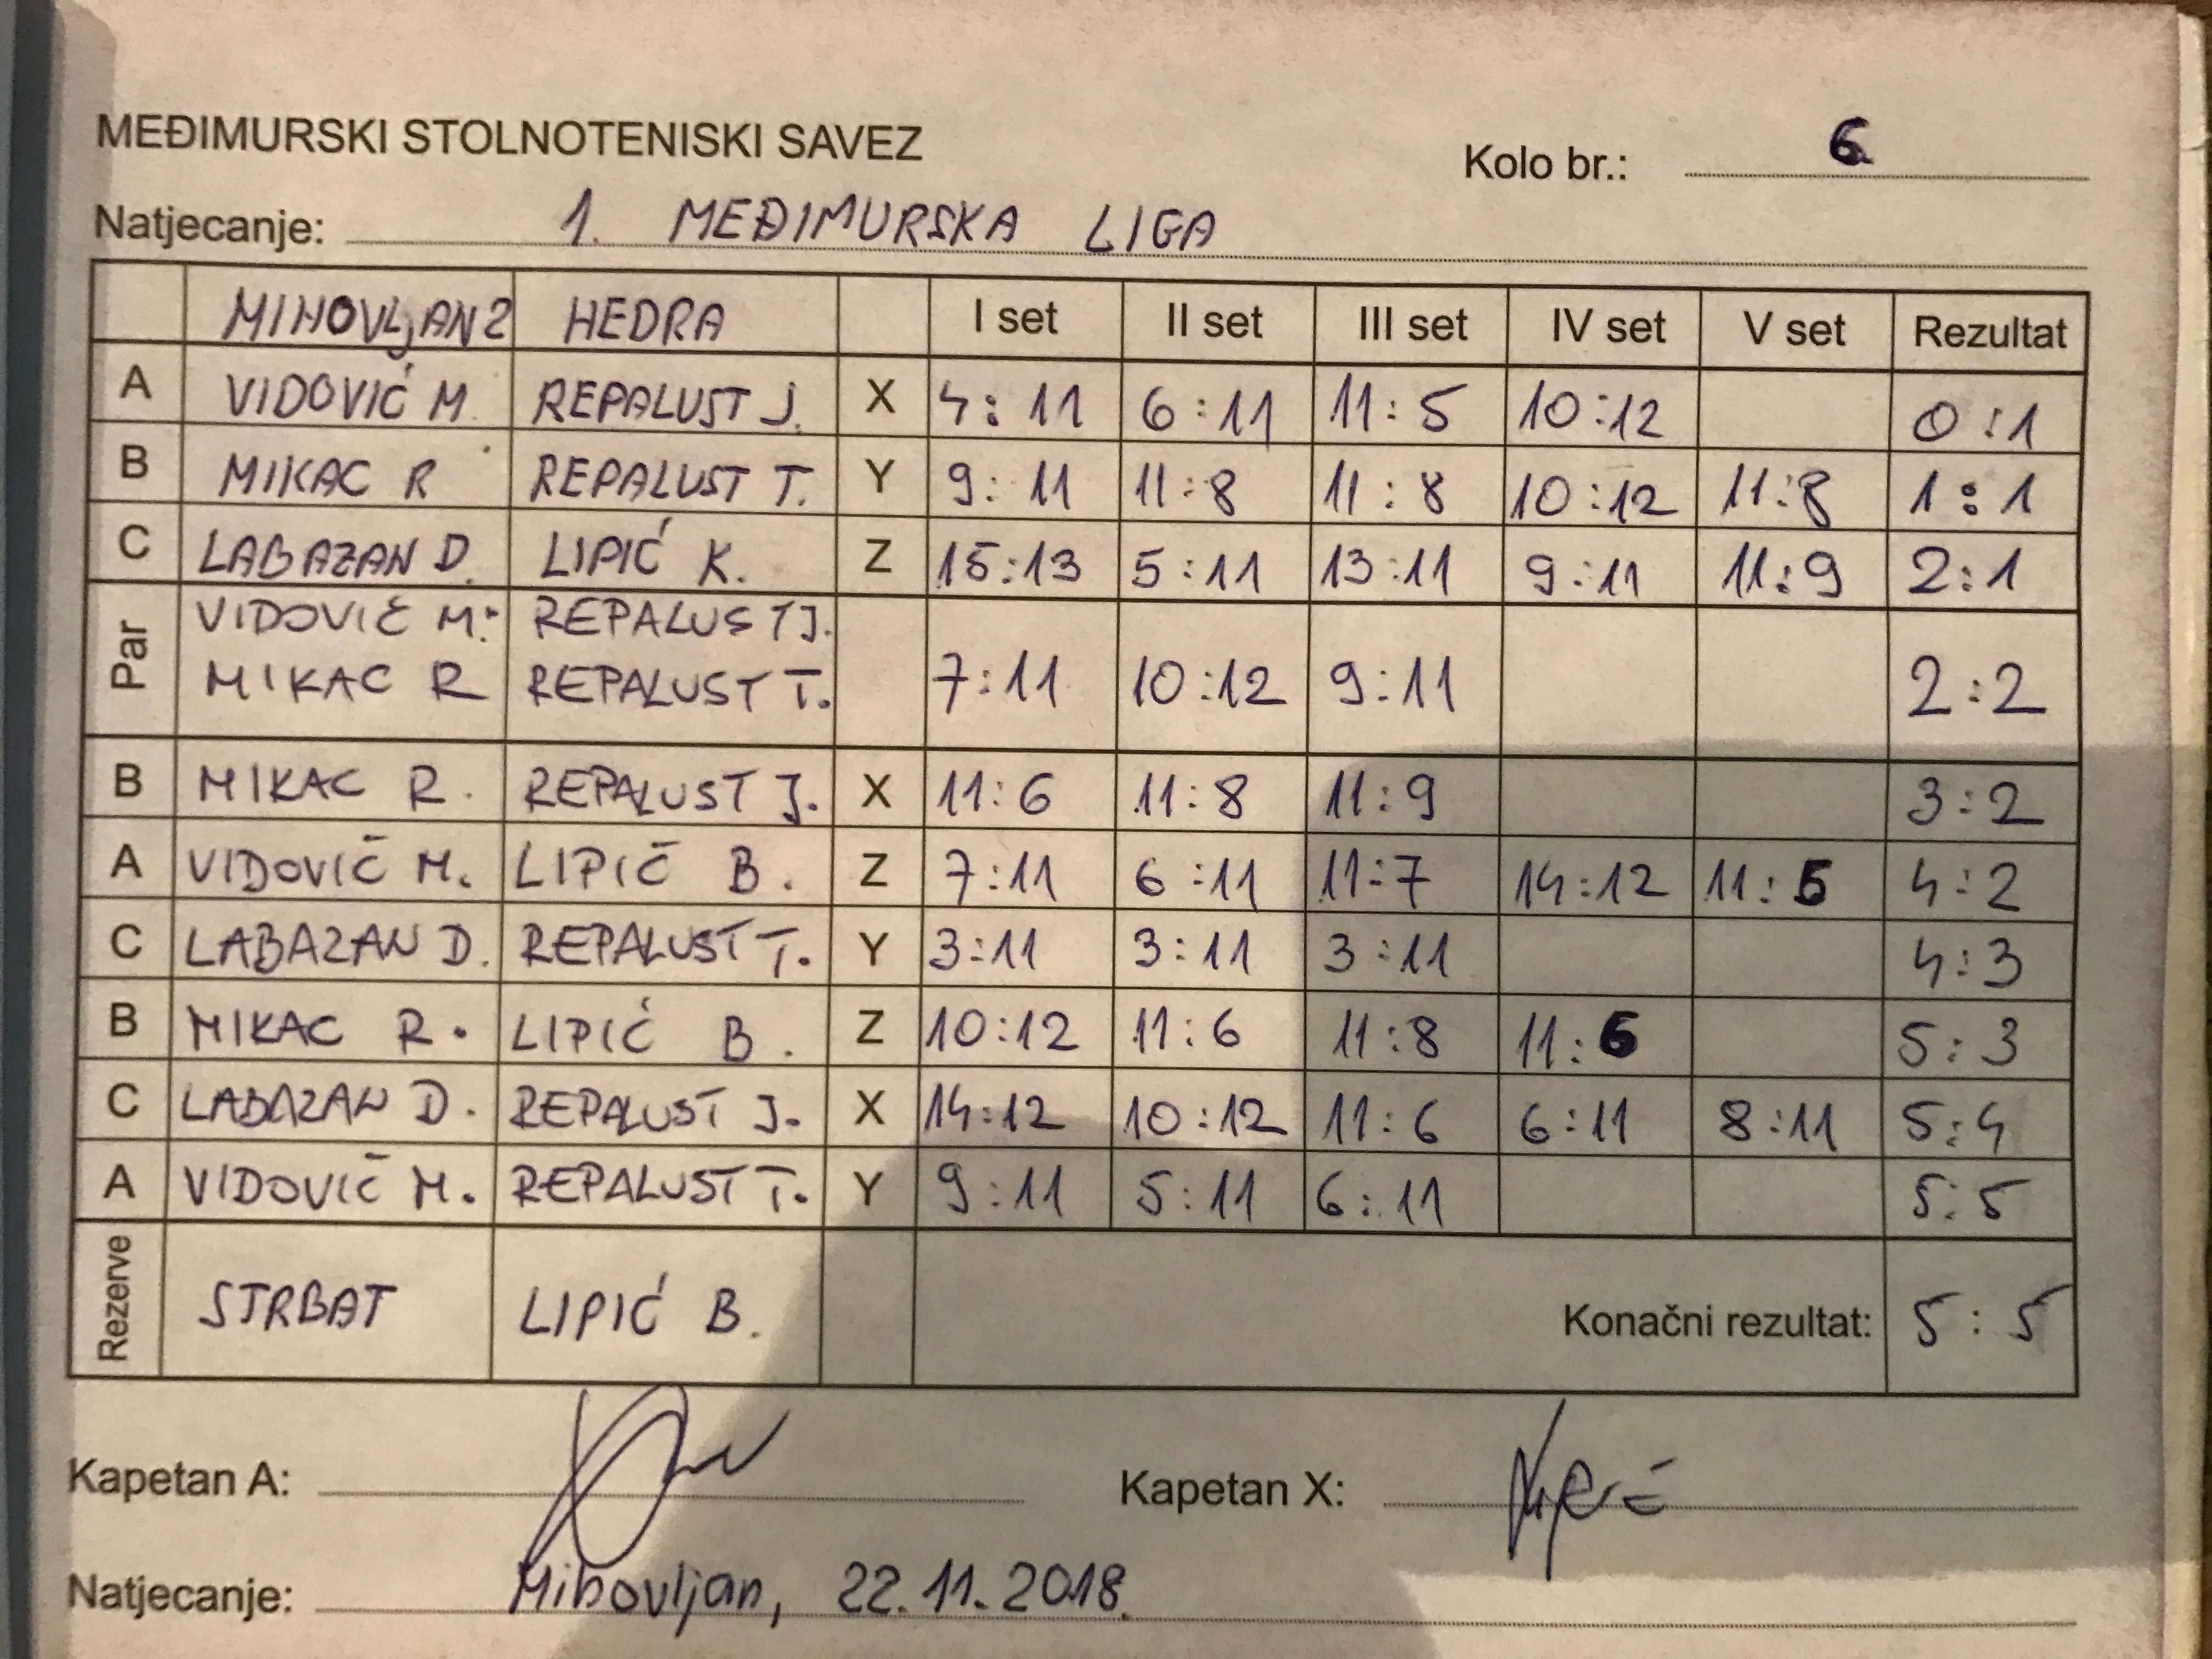 MEĐIMURSKI STOLNOTENISKI SAVEZ
Kolo br.: 6.
Natjecanje: 1. MEĐIMURSKA LIGA
MIHOVLJAN 2 HEDRA I set II set III set IV set V set Rezultat
A VIDOVIĆ M. REPALUST J. X 4:11 6:11 11:5 10:12 0:1
B MIKAC R REPALUST T. Y 9:11 11:8 11:8 10:12 11:8 1:1
C LABAZAN D. LIPIĆ K. Z 15:13 5:11 13:11 9:11 11:9 2:1
Par VIDOVIĆ M. REPALUST J.
MIKAC R REPALUST T. 7:11 10:12 9:11 2:2
B MIKAC R. REPALUST J. X 11:6 11:8 11:9 3:2
A VIDOVIĆ M. LIPIĆ B. Z 7:11 6:11 11:7 14:12 11:5 4:2
C LABAZAN D. REPALUST T. Y 3:11 3:11 3:11 4:3
B MIKAC R. LIPIĆ B. Z 10:12 11:6 11:8 11:6 5:3
C LABAZAN D. REPALUST J. X 14:12 10:12 11:6 6:11 8:11 5:4
A VIDOVIĆ M. REPALUST T. Y 9:11 5:11 6:11 5:5
Rezerve STRBAT LIPIĆ B. Konačni rezultat: 5:5
Kapetan A: Kapetan X:
Natjecanje: Mihovljan, 22.11.2018.